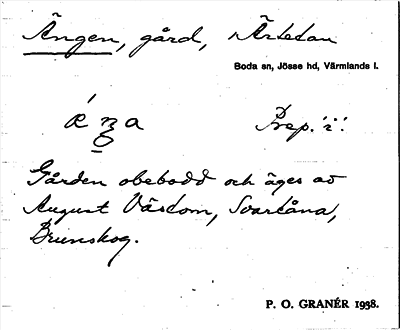 Ängen, gård, Ärtetan
Boda sn, Jösse hd, Värmlands l.
Prep. 'i'.
Gården obebodd och äges av
August Värdom, Svartåna,
Brunskog.
P. O. GRANÉR 1938.